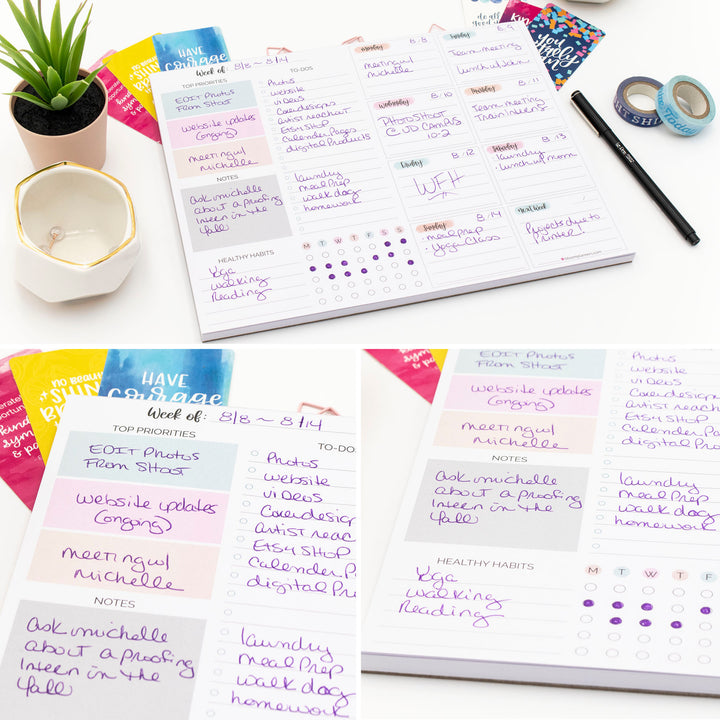 HAVE
courage
Week of: 8/8 ~ 8/14
TOP PRIORITIES
EDIT Photos
From Shoot
website updates
(ongoing)
meeting w/
michelle
NOTES
ask michelle
about a proofing
Intern in the
fall
HEALTHY HABITS
Yoga
walking
Reading
TO-DOS
Photos
website
videos
Cover designs
artist reach out
Etsy Shop
Calender Pages
digital Products
laundry
meal Prep
walk dog
homework
M T W T F S S
Monday 8/8
meeting w/
michelle
Tuesday 8/9
Team meeting
lunch w/
Wednesday 8/10
PHOTOSHOOT
@ JD Campus
10-2
Thursday 8/11
Team meeting
Train Interns
Friday 8/12
WFH
Saturday 8/13
laundry
lunch w/ mom
Sunday 8/14
meal prep
Yoga Class
next week
Projects due to
Printer
do all
good
you
lovely
HT SHI
Today
NO BEAU
SHIN
BR
HAVE
courage
Week of: 8/8 ~ 8/14
TOP PRIORITIES
EDIT Photos
From Shoot
website updates
(ongoing)
meeting w/
michelle
NOTES
ask michelle
about a proofing
Intern in the
fall
TO-DO
Photos
website
videos
Cover design
artist reac
Etsy Shop
Calender P
digital Pr
laundry
meal Prep
walk dog
homework
EDIT Photos
From Shoot
website updates
(ongoing)
meeting w/
michelle
NOTES
ask michelle
about a proofing
Intern in the
fall
HEALTHY HABITS
Yoga
walking
Reading
Photos
website
videos
Cover design
artist reach
Etsy Shop
Calender Pa
digital Pro
laundry
meal Prep
walk dog
homework
M T W T F